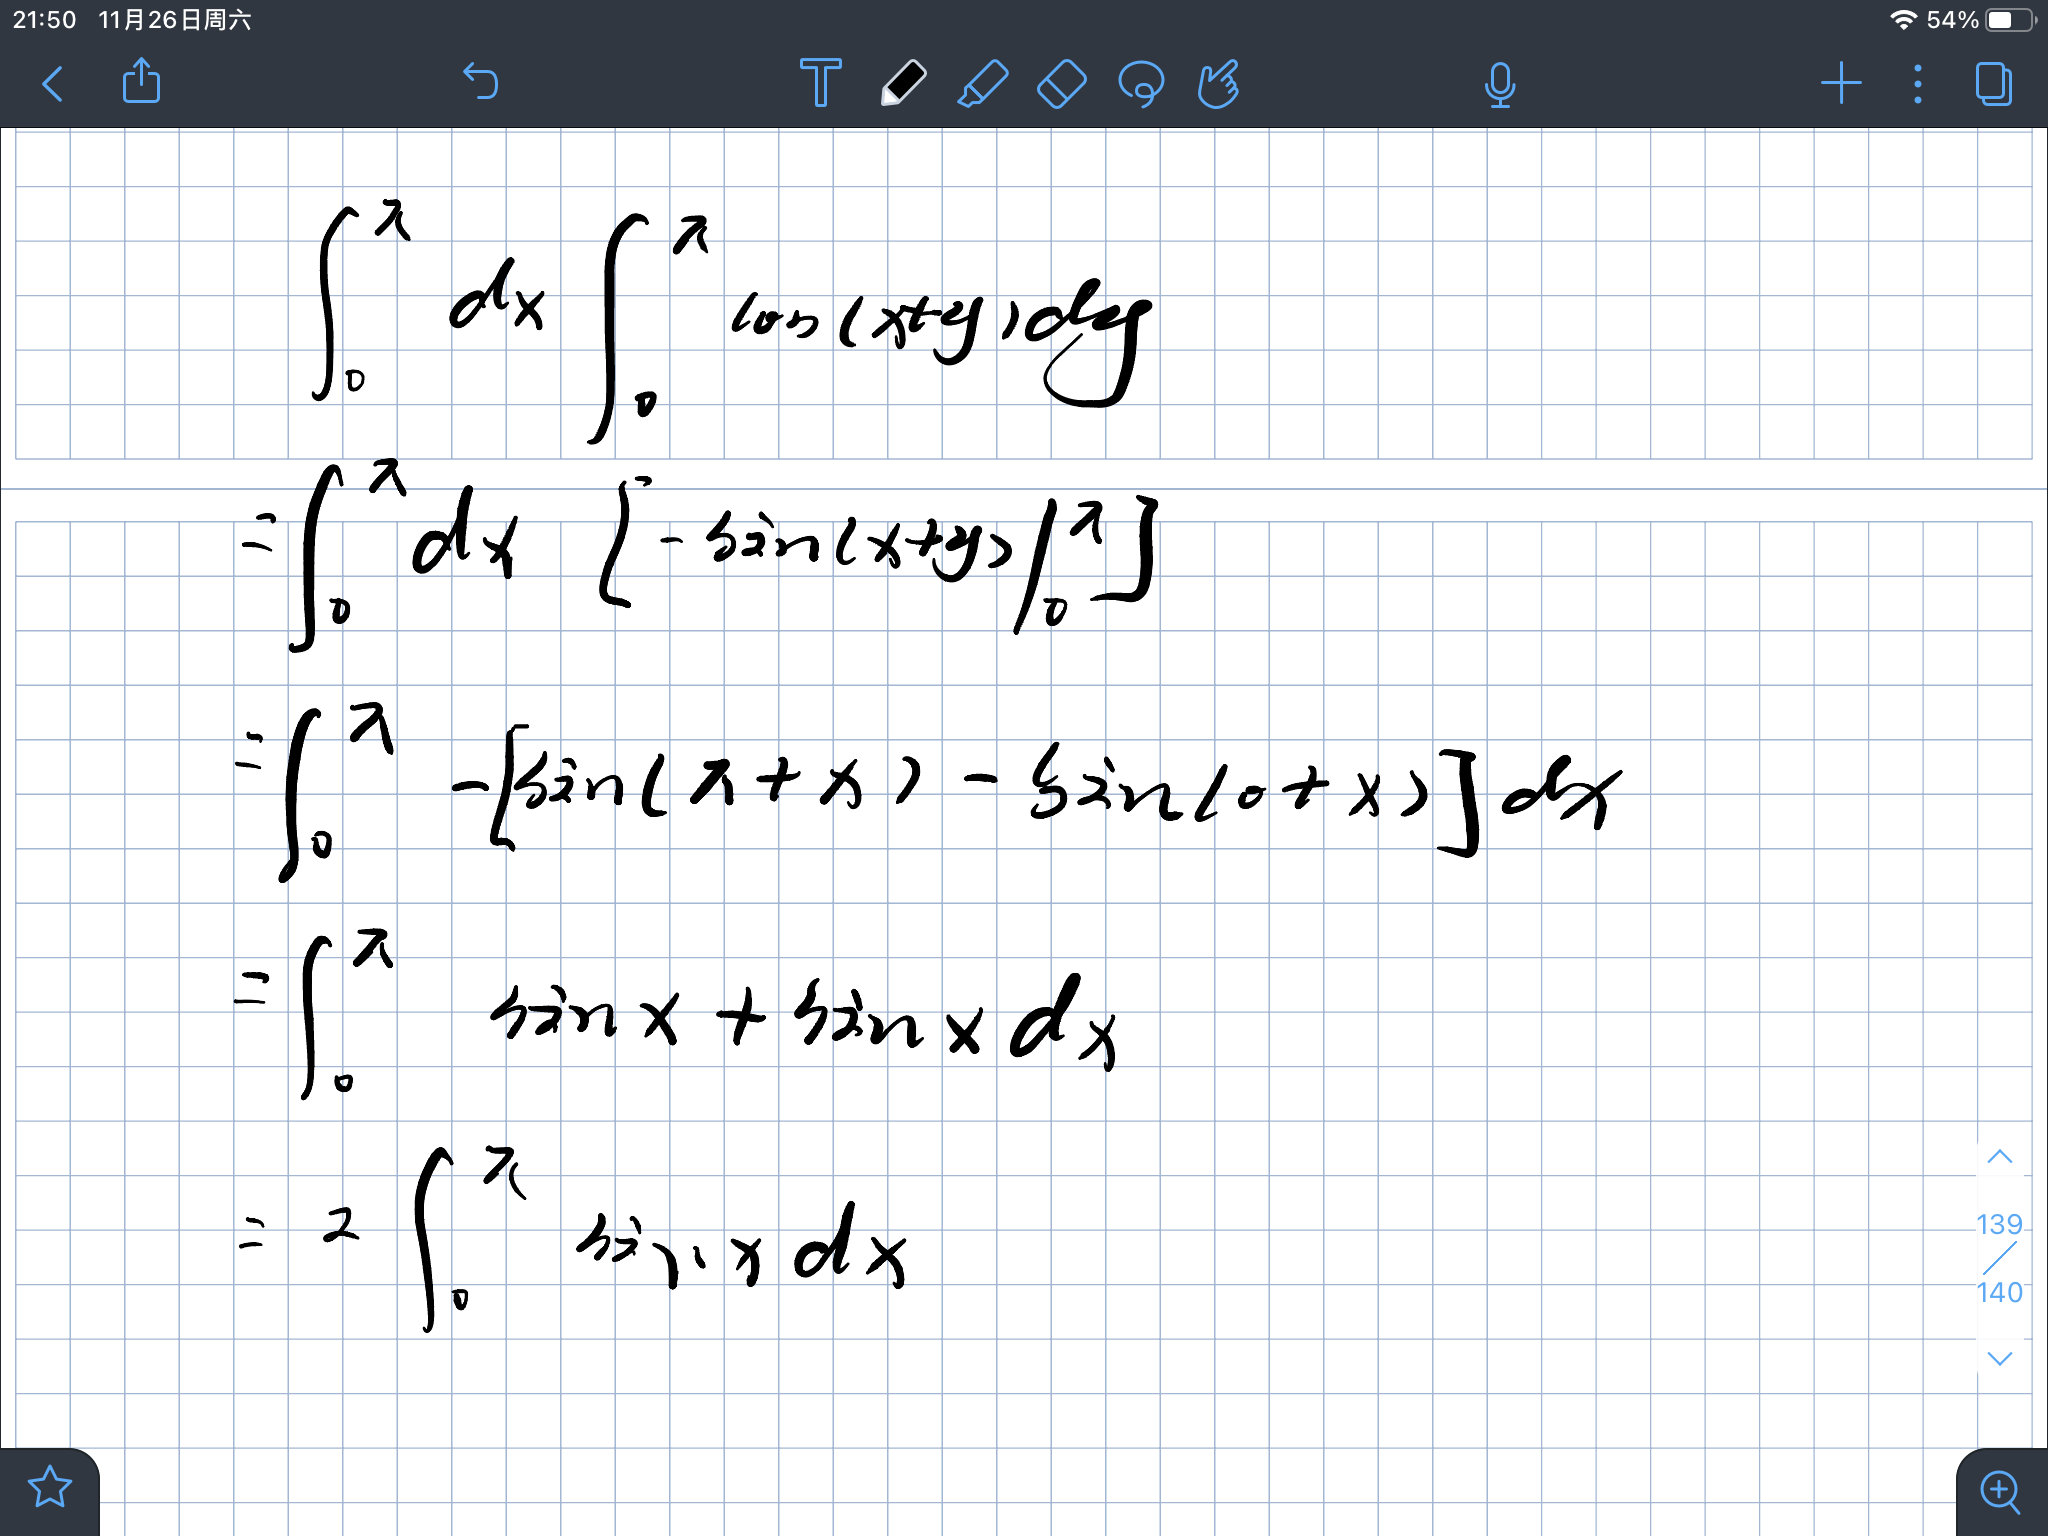 21:50 11月26日周六 54%
∫₀^π dx ∫₀^π cos(x+y)dy
= ∫₀^π dx [-sin(x+y)|₀^π]
= ∫₀^π -[sin(π+x) - sin(0+x)]dx
= ∫₀^π sin x + sin x dx
= 2 ∫₀^π sin x dx
139
/
140